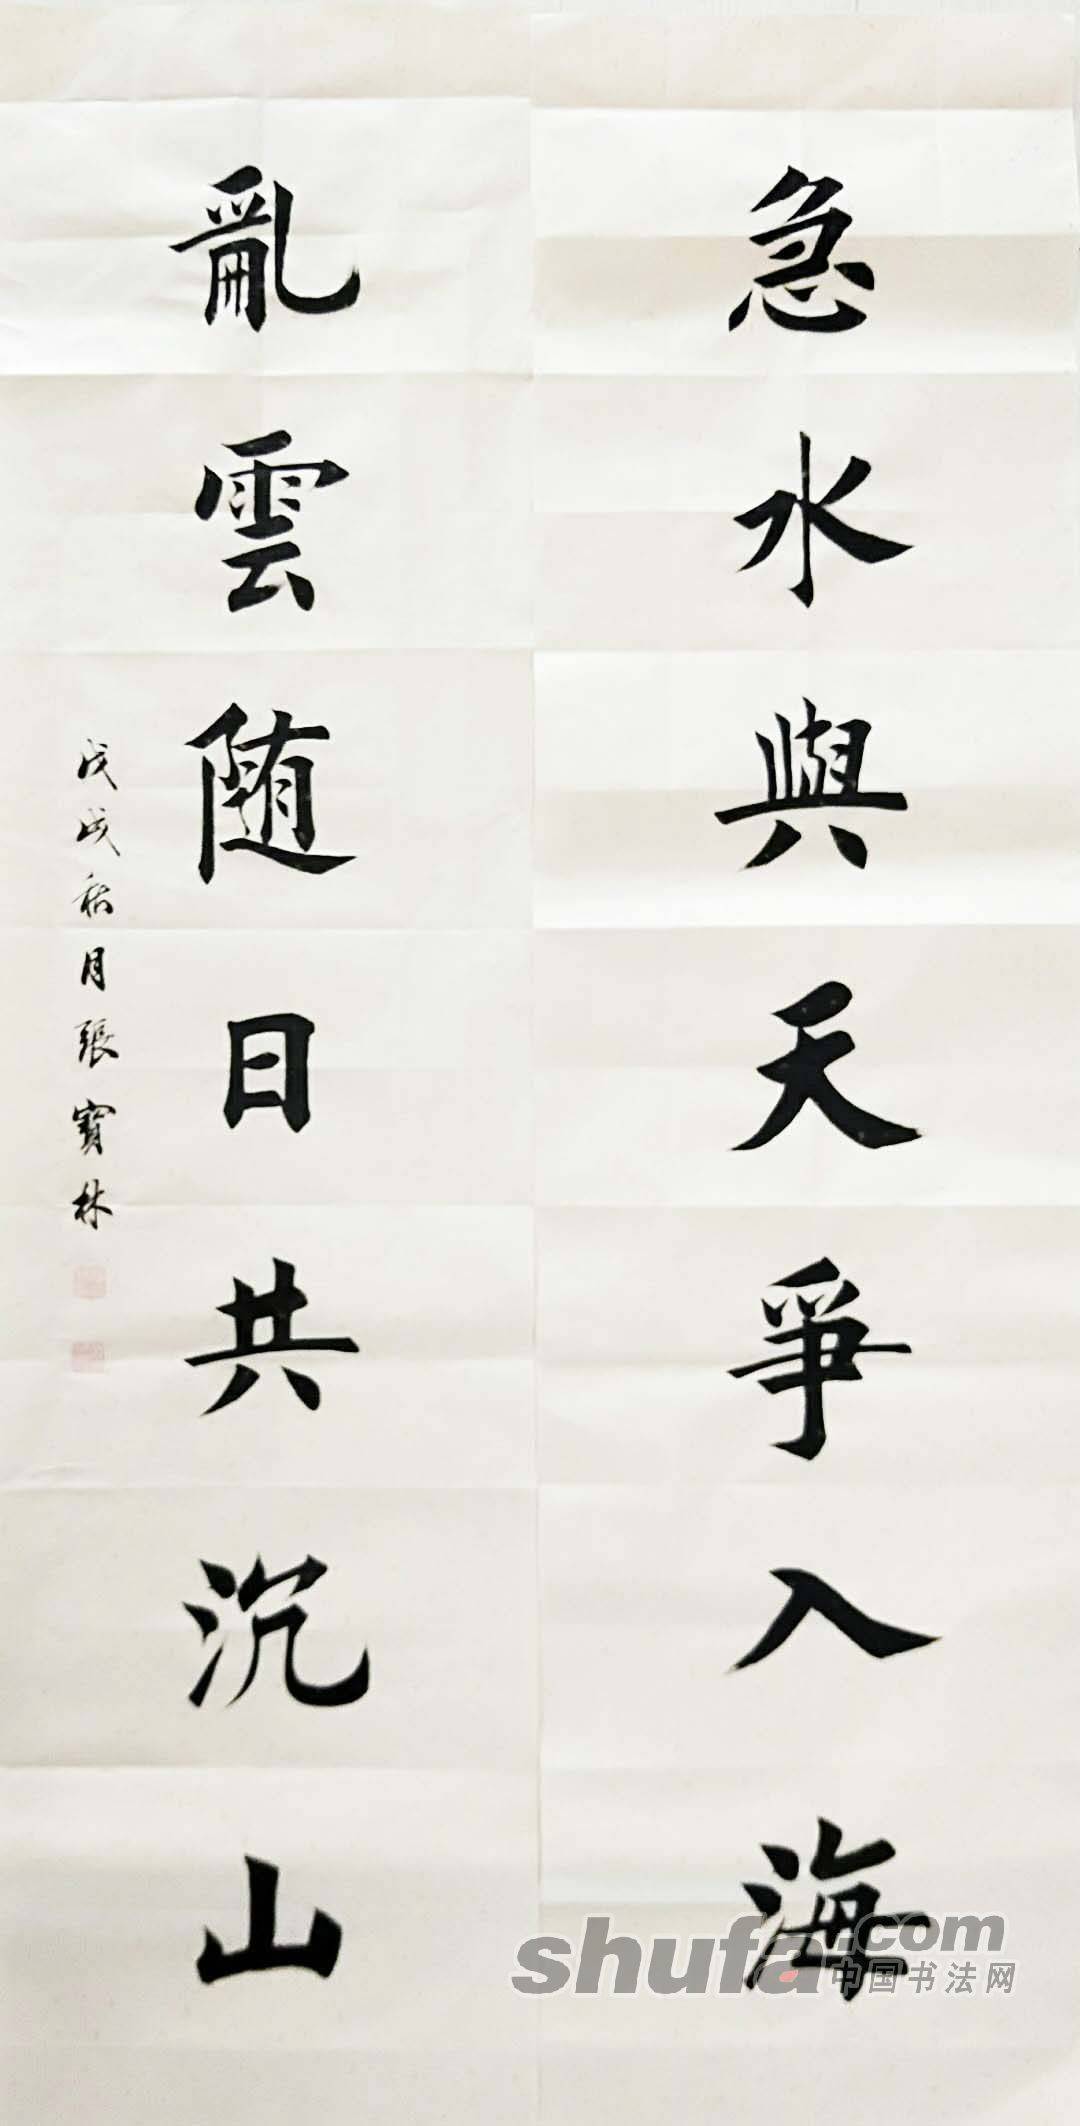 急水與天爭入海
亂雲随日共沉山
戊戌秋月張寶林
shufa.com
中国书法网